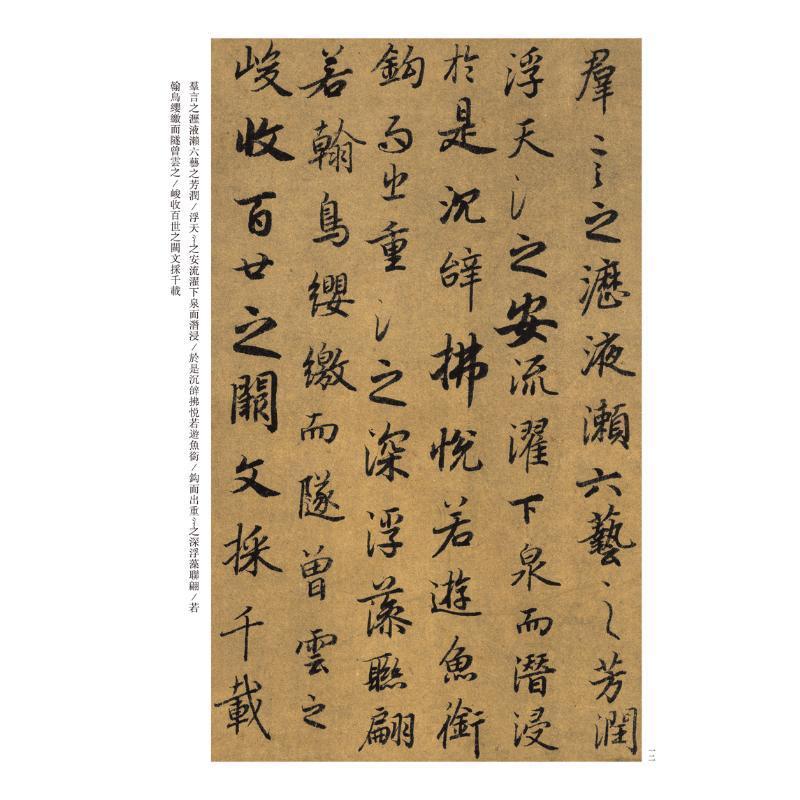 羣言之瀝液瀨六藝之芳潤
浮天氵之安流濯下泉而潛浸
於是沉辝拂悅若遊魚銜
鈎而出重氵之深浮藻聯翩
若翰鳥纓繳而隧曾雲之
峻收百世之闕文採千載
羣言之瀝液瀨六藝之芳潤/浮天氵之安流濯下泉而潛浸/於是沉辝拂悅若遊魚銜/鈎而出重氵之深浮藻聯翩/若
翰鳥纓繳而隧曾雲之/峻收百世之闕文採千載